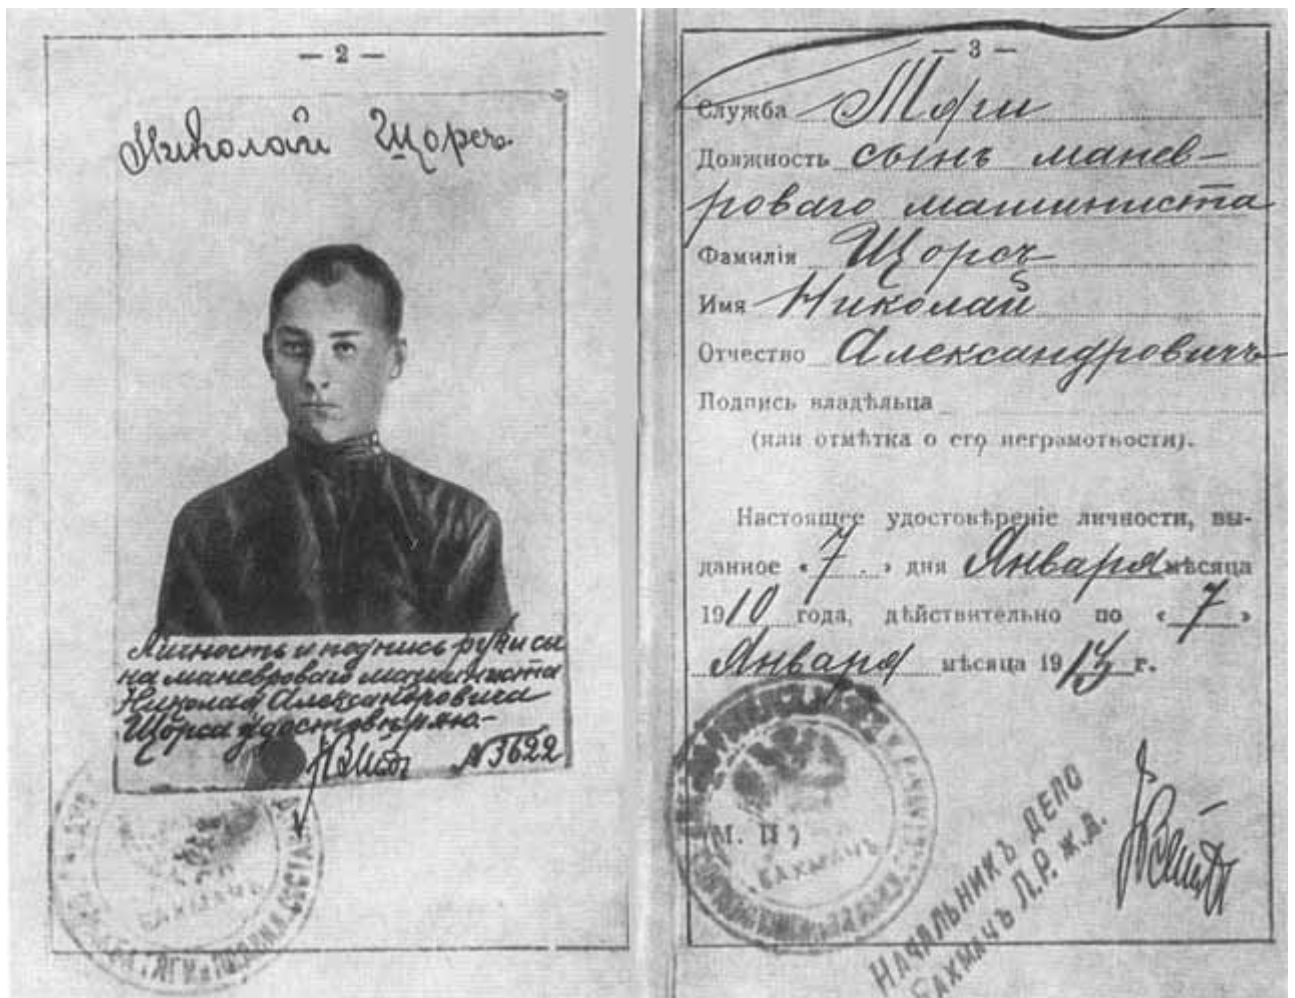 — 2 —
Николай Щорсъ.
Личность и подпись руки сы
на маневроваго машиниста
Николая Александровича
Щорса удостовѣряю.-
№ 3622
БАХМАЧЪ
ТЯГИ
— 3 —
Служба Тяги
Должность сынъ манев-
роваго машиниста
Фамилія Щорсъ
Имя Николай
Отчество Александровичъ
Подпись владѣльца
(или отмѣтка о его неграмотности).
Настоящее удостовѣреніе личности, вы-
данное «7» дня Января мѣсяца
1910 года, дѣйствительно по «7»
Января мѣсяца 1913 г.
М. П.
БАХМАЧЪ
НАЧАЛЬНИКЪ ДЕПО
БАХМАЧЪ Л.Р. Ж.Д.